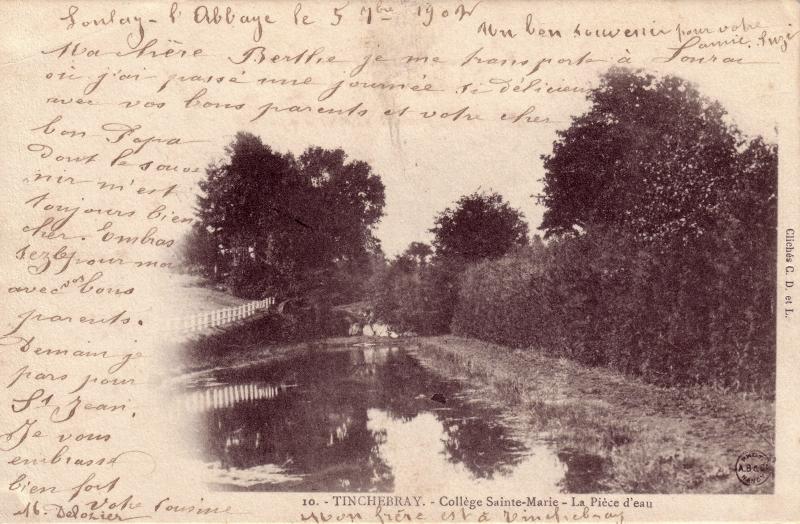 Soulay - l'Abbaye le 5 7bre 1902
Un bon souvenir pour votre
amie. Suzi
Ma chère Berthe je me transporte à
où j'ai passé une journée si délicieuse
avec vos bons parents et votre cher
bon Papa
Dont le souve
nir m'est
toujours bien
cher. Embras
sez les pour moi
avec vos bons
parents.
Demain je
pars pour
St Jean.
Je vous
embrasse
bien fort
Votre cousine
M. Delozier
Mon frère est à Tinchebray
10. - TINCHEBRAY. - Collège Sainte-Marie - La Pièce d'eau
Clichés C. D. et L.
A.B.C.
NANCY